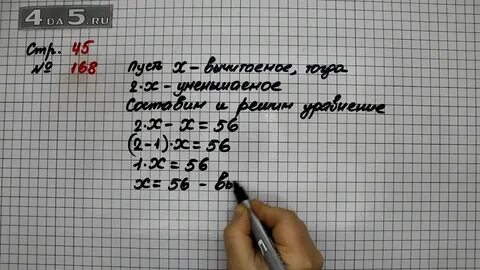 4 da 5.ru
Стр. 45
№ 168
Пусть x – вычитаемое, тогда
2·x – уменьшаемое
Составим и решим уравнение
2·x – x = 56
(2–1)·x = 56
1·x = 56
x = 56 – вы